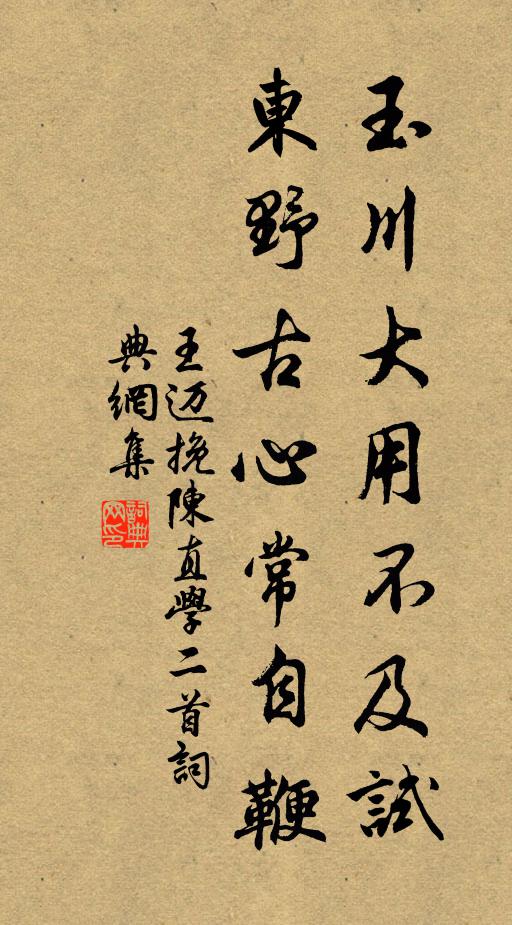 玉川大用不及試
東野古心常自鞭
王迈挽陳直學二首詞
典網集
詞典
网印